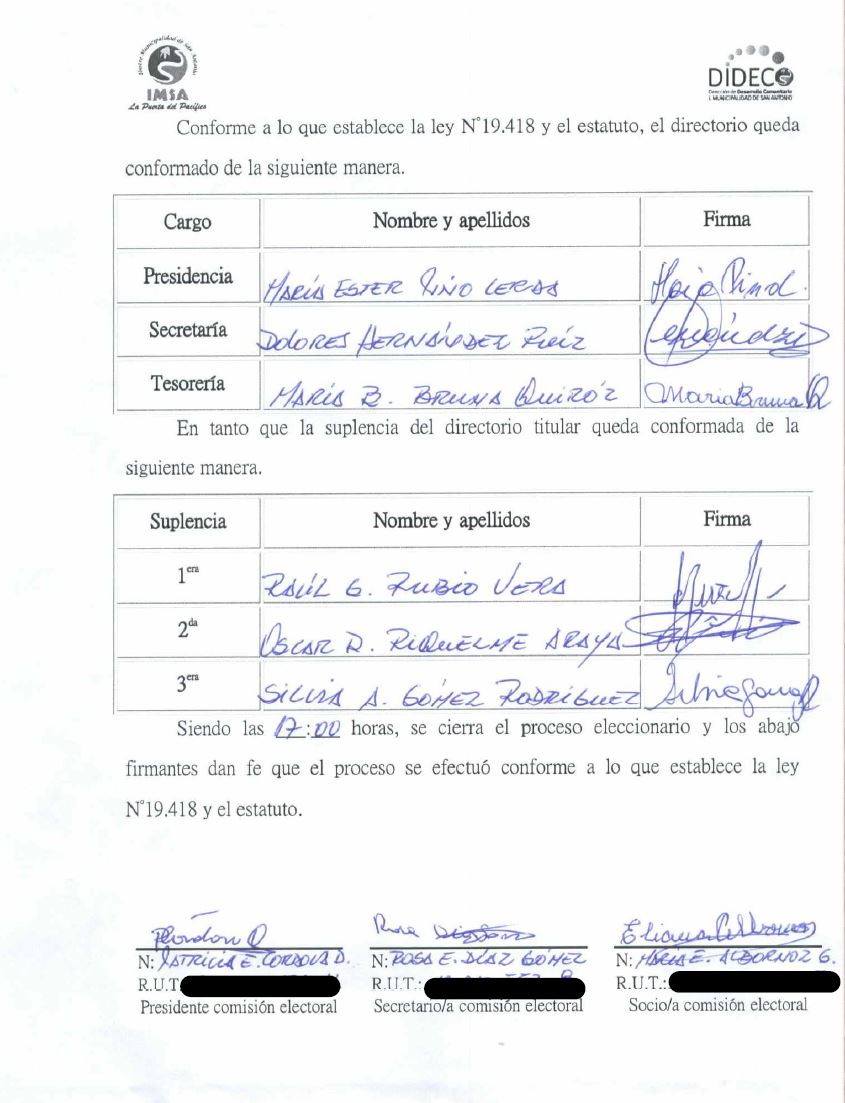 Ilustre Municipalidad de San Antonio
IMSA
La Puerta del Pacífico
DIDECO
Dirección de Desarrollo Comunitario
I. MUNICIPALIDAD DE SAN ANTONIO
Conforme a lo que establece la ley N°19.418 y el estatuto, el directorio queda
conformado de la siguiente manera.
Cargo Nombre y apellidos Firma
Presidencia MARÍA ESTER PINO LERDA
Secretaría DOLORES HERNÁNDEZ RUÍZ
Tesorería MARÍA B. BRUNA QUIRÓZ Maria Bruna Q
En tanto que la suplencia del directorio titular queda conformada de la
siguiente manera.
Suplencia Nombre y apellidos Firma
1era RAÚL G. RUBIO VERA
2da OSCAR D. RIQUELME ARAYA
3era SILVIA A. GÓMEZ RODRÍGUEZ
Siendo las 17:00 horas, se cierra el proceso eleccionario y los abajo
firmantes dan fe que el proceso se efectuó conforme a lo que establece la ley
N°19.418 y el estatuto.
N: PATRICIA E. CORDOVA D. N: ROSA E. DÍAZ GÓMEZ N: MARIA E. ALBORNOZ G.
R.U.T R.U.T.: R.U.T.:
Presidente comisión electoral Secretario/a comisión electoral Socio/a comisión electoral